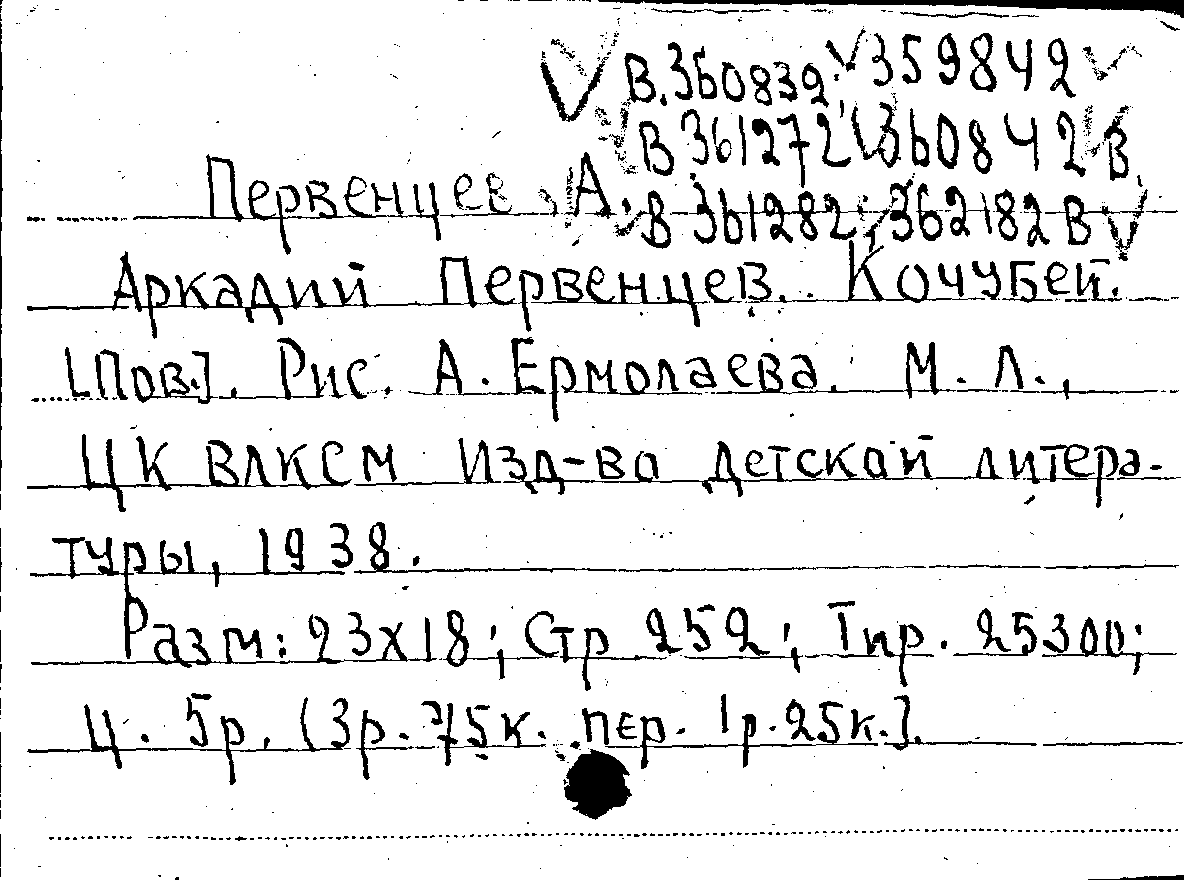 В.360839 359842
В 361272 360842 В.
Первенцев, А. В 361282, 362182 В
Аркадий Первенцев. Кочубей.
[Пов.]. Рис. А. Ермолаева. М. Л.,
ЦК ВЛКСМ Изд-во детской литера-
туры, 1938.
Разм: 23х18; Стр 252; Тир. 25300;
Ц. 5р. (3р. 75к. пер. 1р. 25к.].